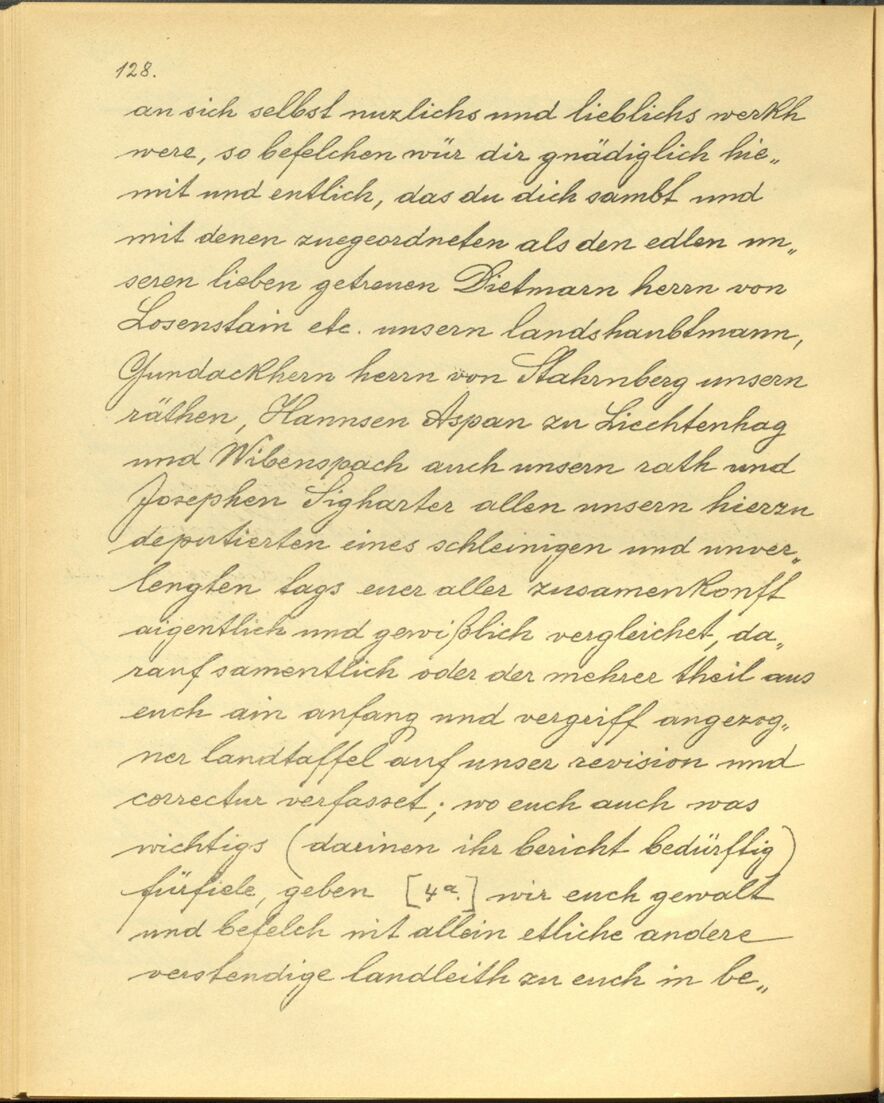 128.
an sich selbst nuzlichs und lieblichs werkh
were, so befelchen wür dir gnädiglich hie„
mit und entlich, das du dich sambt und
mit denen zuegeordneten als den edlen un„
seren lieben getreuen Dietmarn herrn von
Losenstain etc. unsern landshaubtmann,
Gundackhern herrn von Stahrnberg unsern
räthen, Hannsen Aspan zu Liechtenhag
und Wibenspach auch unsern rath und
Josephen Sigharter allen unsern hierzu
deputierten eines schleinigen und unver„
lengten tags eurer aller zusamenkonft
aigentlich und gewißlich vergleichet, da„
rauf samentlich oder der mehrer theil aus
euch ain anfang und vergriff angezog„
ner landtaffel auf unser revision und
correctur verfasset; wo euch auch was
wichtigs (darinen ihr bericht bedürftig)
fürfiele, geben [4a.] wir euch gewalt
und befelch nit allein etliche andere
verstendige landleith zu euch in be„